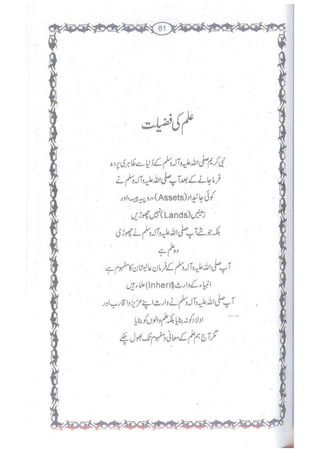 61
علم کی فضیلت
نبی کریم صلی اللہ علیہ وآلہ وسلم کے دُنیا سے ظاہری پردہ
فرما جانے کے بعد آپ صلی اللہ علیہ وآلہ وسلم نے
کوئی جائیداد (Assets)، روپیہ پیسہ اور
زمینیں (Lands) نہیں چھوڑیں
بلکہ جو شے آپ صلی اللہ علیہ وآلہ وسلم نے چھوڑی
وہ علم ہے
آپ صلی اللہ علیہ وآلہ وسلم کے فرمان عالیشان کا مفہوم ہے
انبیاء کے وارث (Inherit) علماء ہیں
آپ صلی اللہ علیہ وآلہ وسلم نے وارث اپنے عزیز و اقارب اور
اولاد کو نہ بنایا بلکہ علم والوں کو بنایا
مگر آج ہم علم کے معانی و مفہوم تک بھول چکے